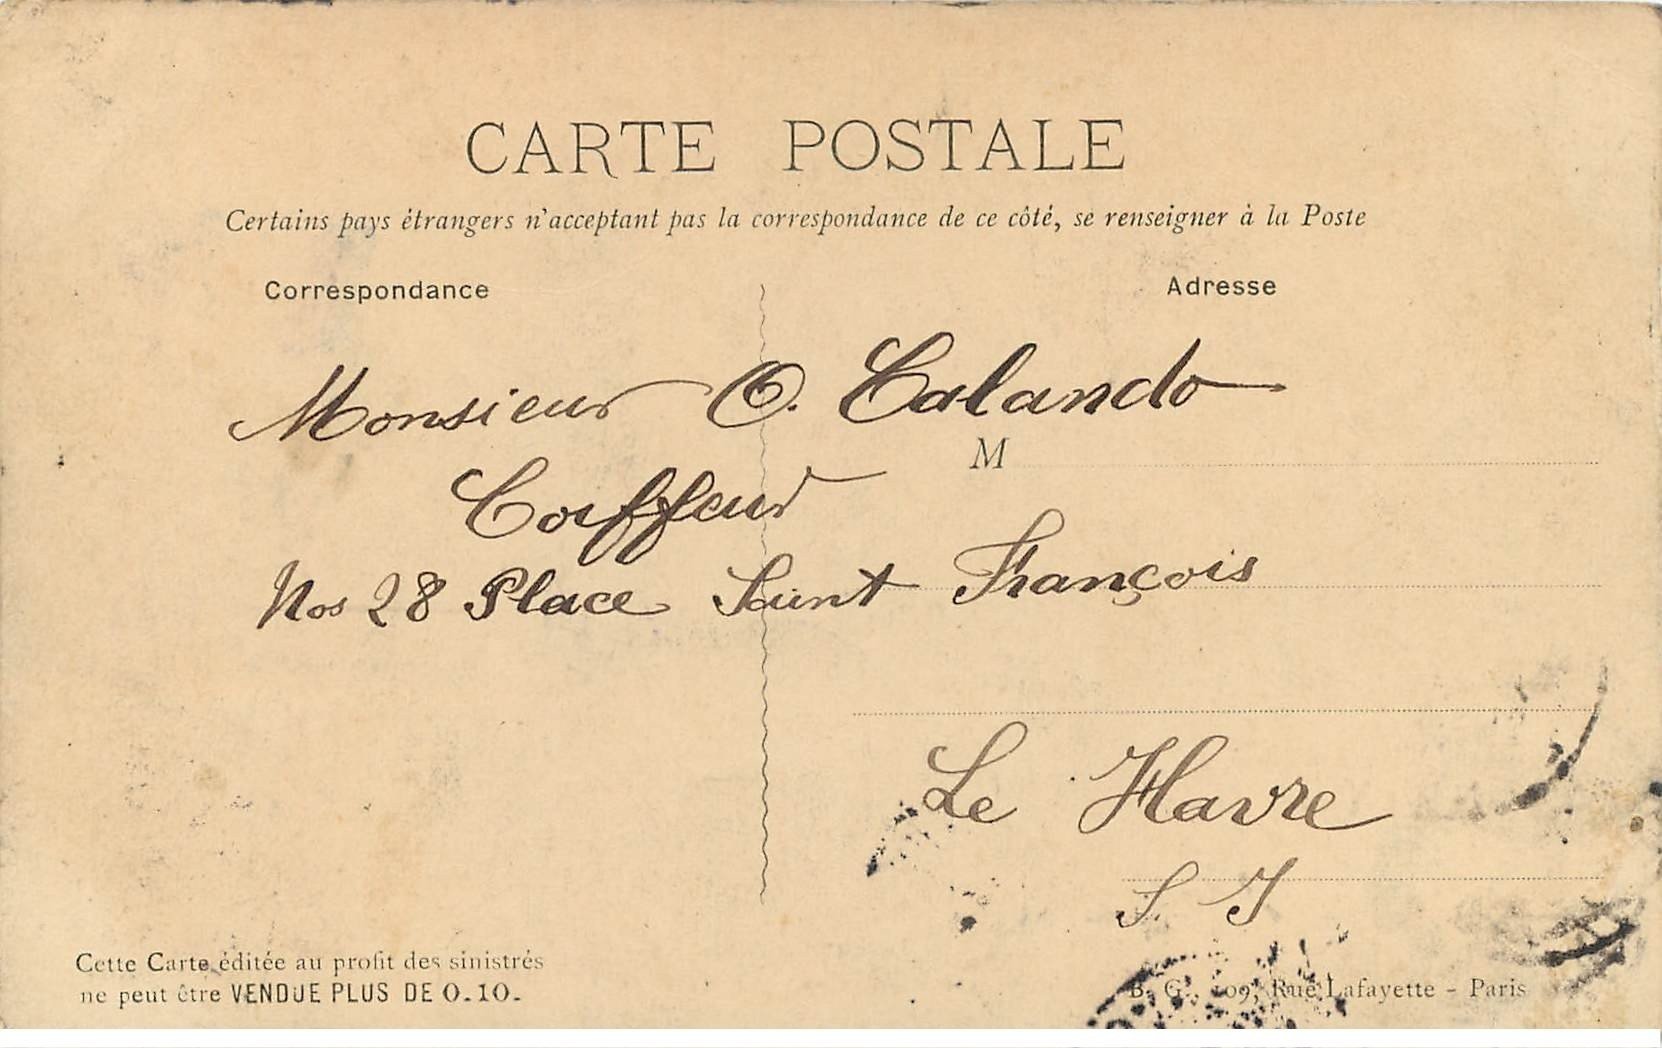 CARTE POSTALE
Certains pays étrangers n'acceptant pas la correspondance de ce côté, se renseigner à la Poste
Correspondance
Adresse
Monsieur O. Calando
M
Coiffeur
Nos 28 Place Saint François
Le Havre
S. I
Cette Carte éditée au profit des sinistrés
ne peut être VENDUE PLUS DE 0.10.
B. G., 109, Rue Lafayette - Paris